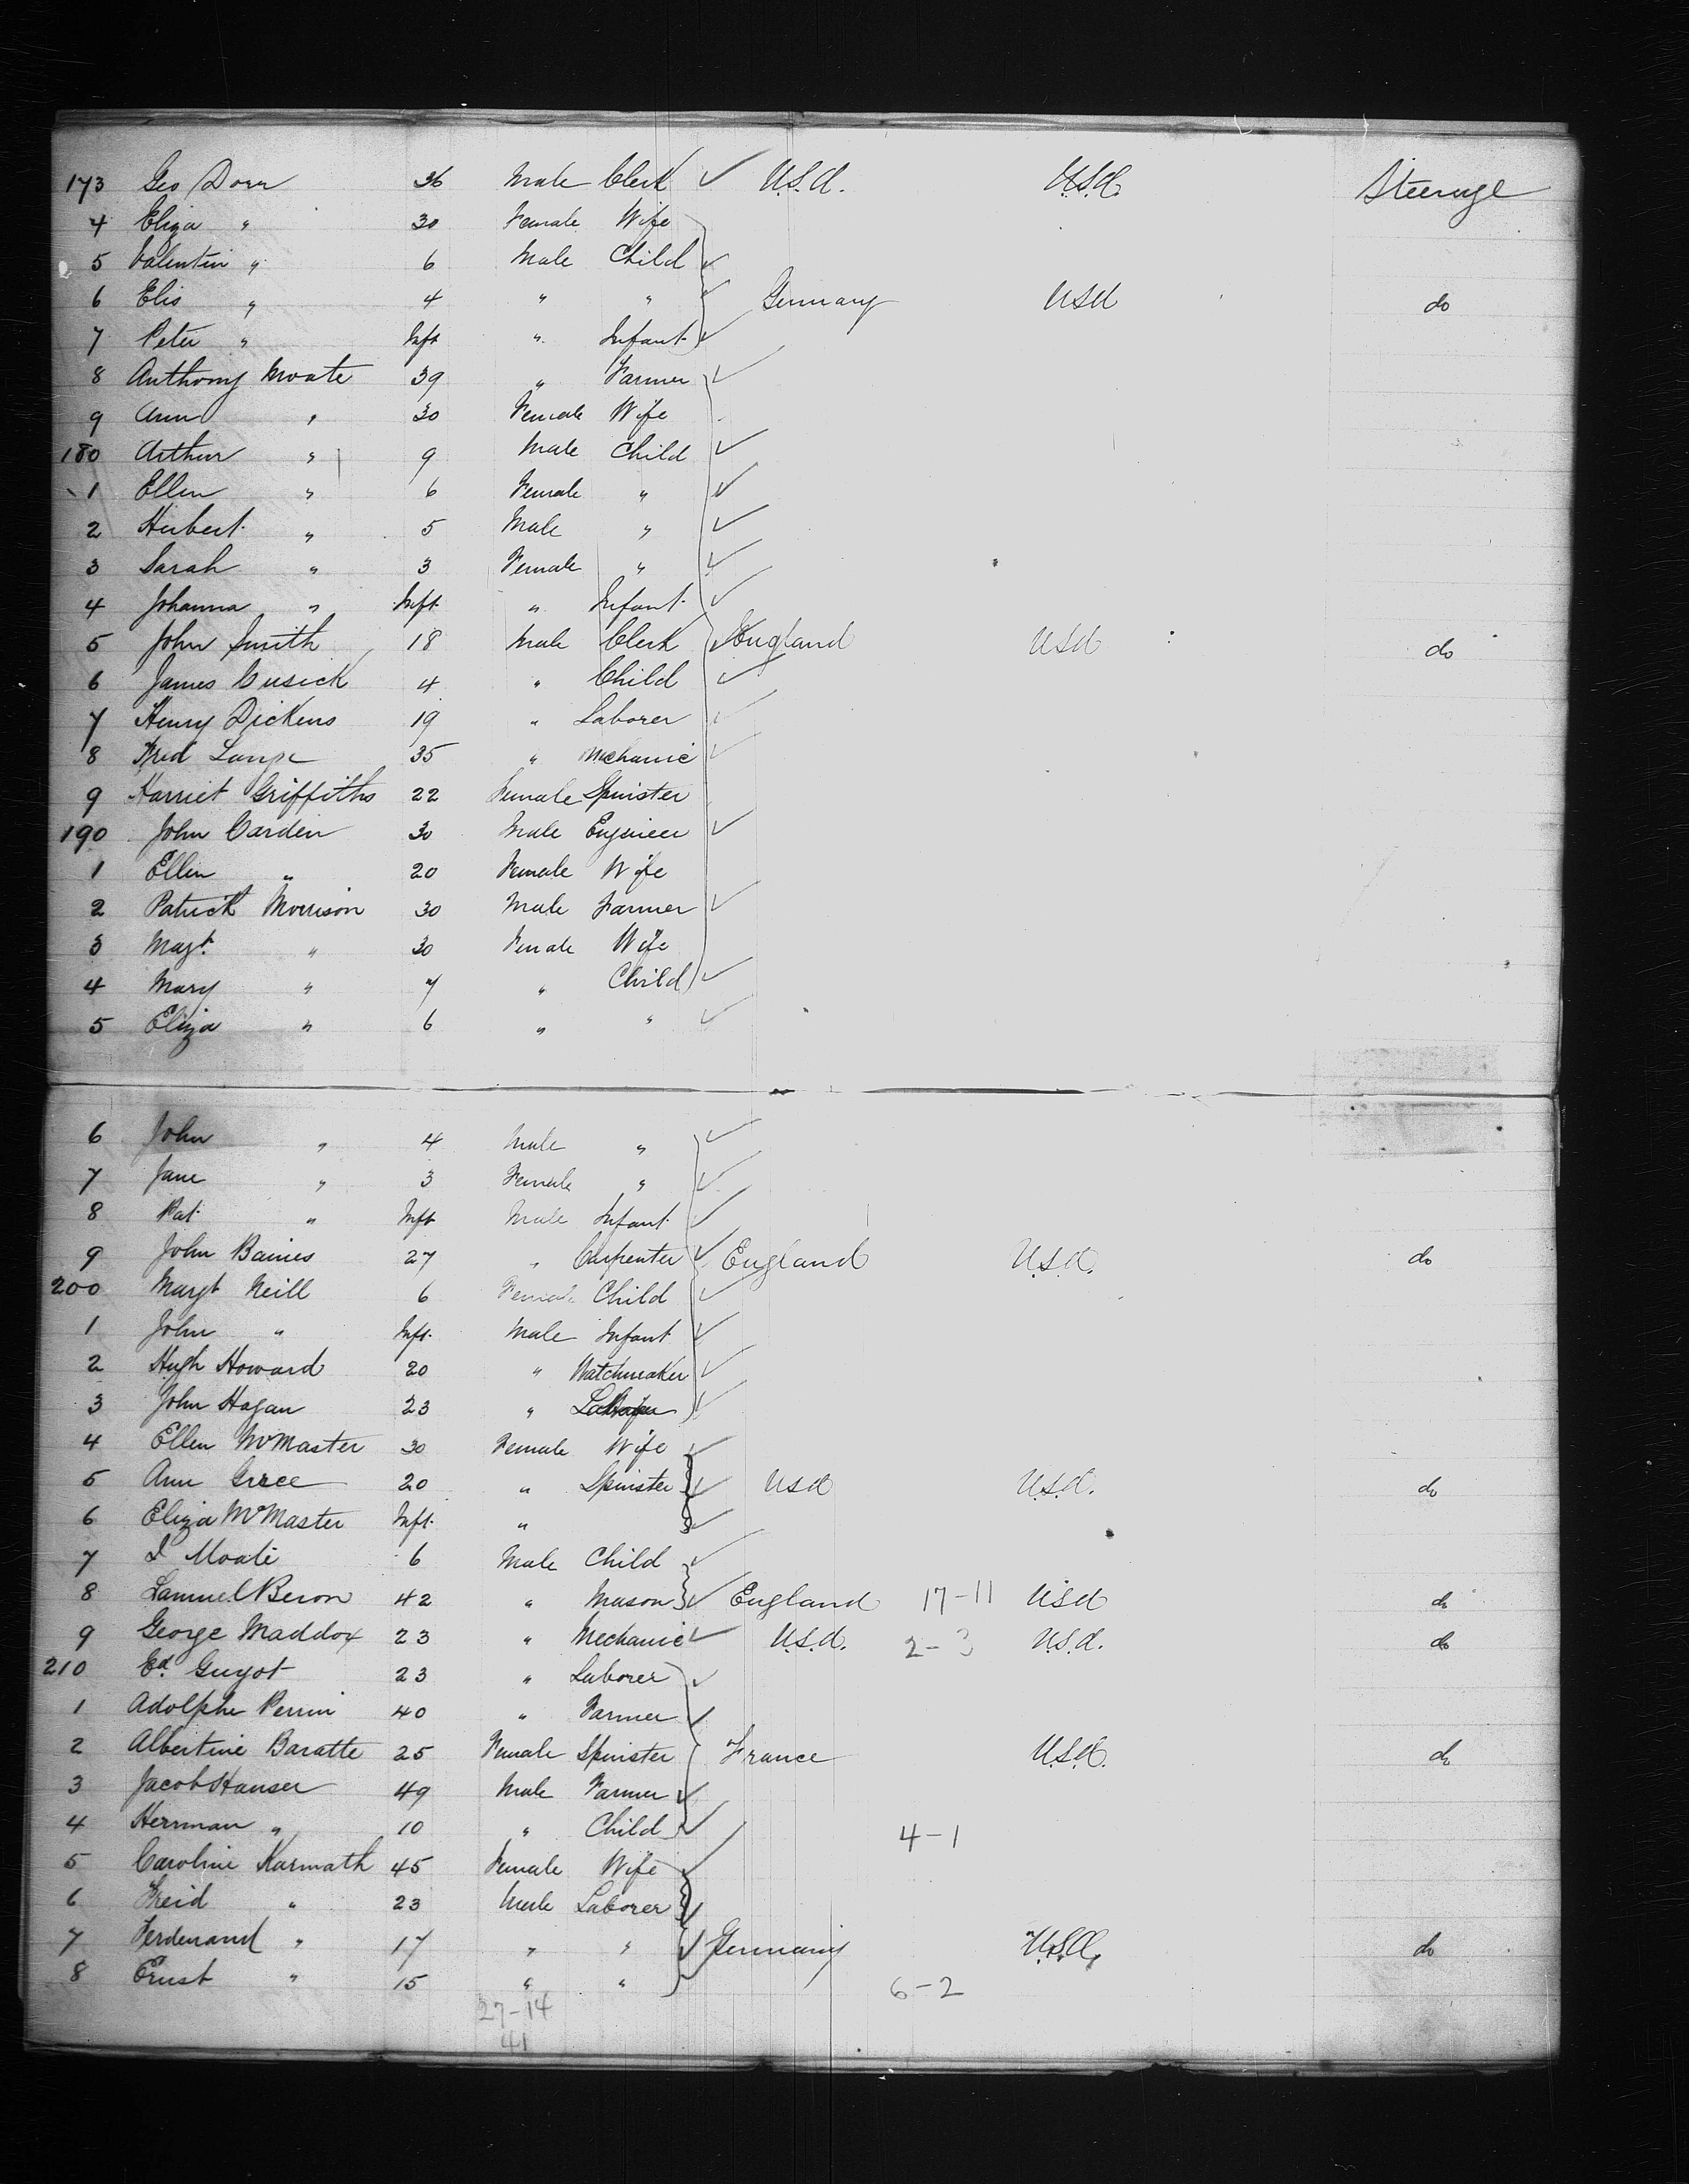 173 Geo Dorr 36 Male Clerk ✓ U.S.A. U.S.A. Steerage
4 Eliza " 30 Female Wife
5 Valentin " 6 Male Child ✓
6 Elis " 4 " " ✓ Germany USA do
7 Peter " Inft " Infant ✓
8 Anthony Moate 39 " Farmer ✓
9 Ann " 30 Female Wife
180 Arthur " 9 Male Child ✓
1 Ellen " 6 Female " ✓
2 Herbert " 5 Male " ✓
3 Sarah " 3 Female " ✓
4 Johanna " Inft. " Infant ✓
5 John Smith 18 Male Clerk ✓ England USA do
6 James Cusick 4 " Child ✓
7 Henry Dickens 19 " Laborer ✓
8 Fred Lange 35 " Mechanic ✓
9 Harriet Griffiths 22 Female Spinster
190 John Carden 30 Male Engineer ✓
1 Ellen " 20 Female Wife
2 Patrick Morrison 30 Male Farmer ✓
3 Magt. " 30 Female Wife
4 Mary " 7 " Child ✓
5 Eliza " 6 " " ✓
6 John " 4 Male " ✓
7 Jane " 3 Female " ✓
8 Pat " Inft Male Infant ✓
9 John Baines 27 " Carpenter ✓ England U.S.A. do
200 Margt Neill 6 Female Child ✓
1 John " Inft. Male Infant ✓
2 Hugh Howard 20 " Watchmaker ✓
3 John Hagan 23 " ✓
4 Ellen McMaster 30 Female Wife ✓
5 Ann Grace 20 " Spinster ✓ USA U.S.A. do
6 Eliza McMaster Inft. " ✓
7 I Moate 6 Male Child ✓
8 Samuel Beron 42 " Mason ✓ England 17-11 USA do
9 George Maddox 23 " Mechanic ✓ U.S.A. 2-3 U.S.A. do
210 Ed. Guyot 23 " Laborer ✓
1 Adolphe Perrin 40 " Farmer ✓
2 Albertine Baratte 25 Female Spinster France U.S.A. do
3 Jacob Hauser 49 Male Farmer ✓
4 Herrman " 10 " Child ✓ 4-1
5 Caroline Karmath 45 Female Wife ✓
6 Freid " 23 Male Laborer ✓
7 Ferdenand " 17 " " ✓ Germany U.S.A. do
8 Ernst " 15 " " 6-2
27-14
41